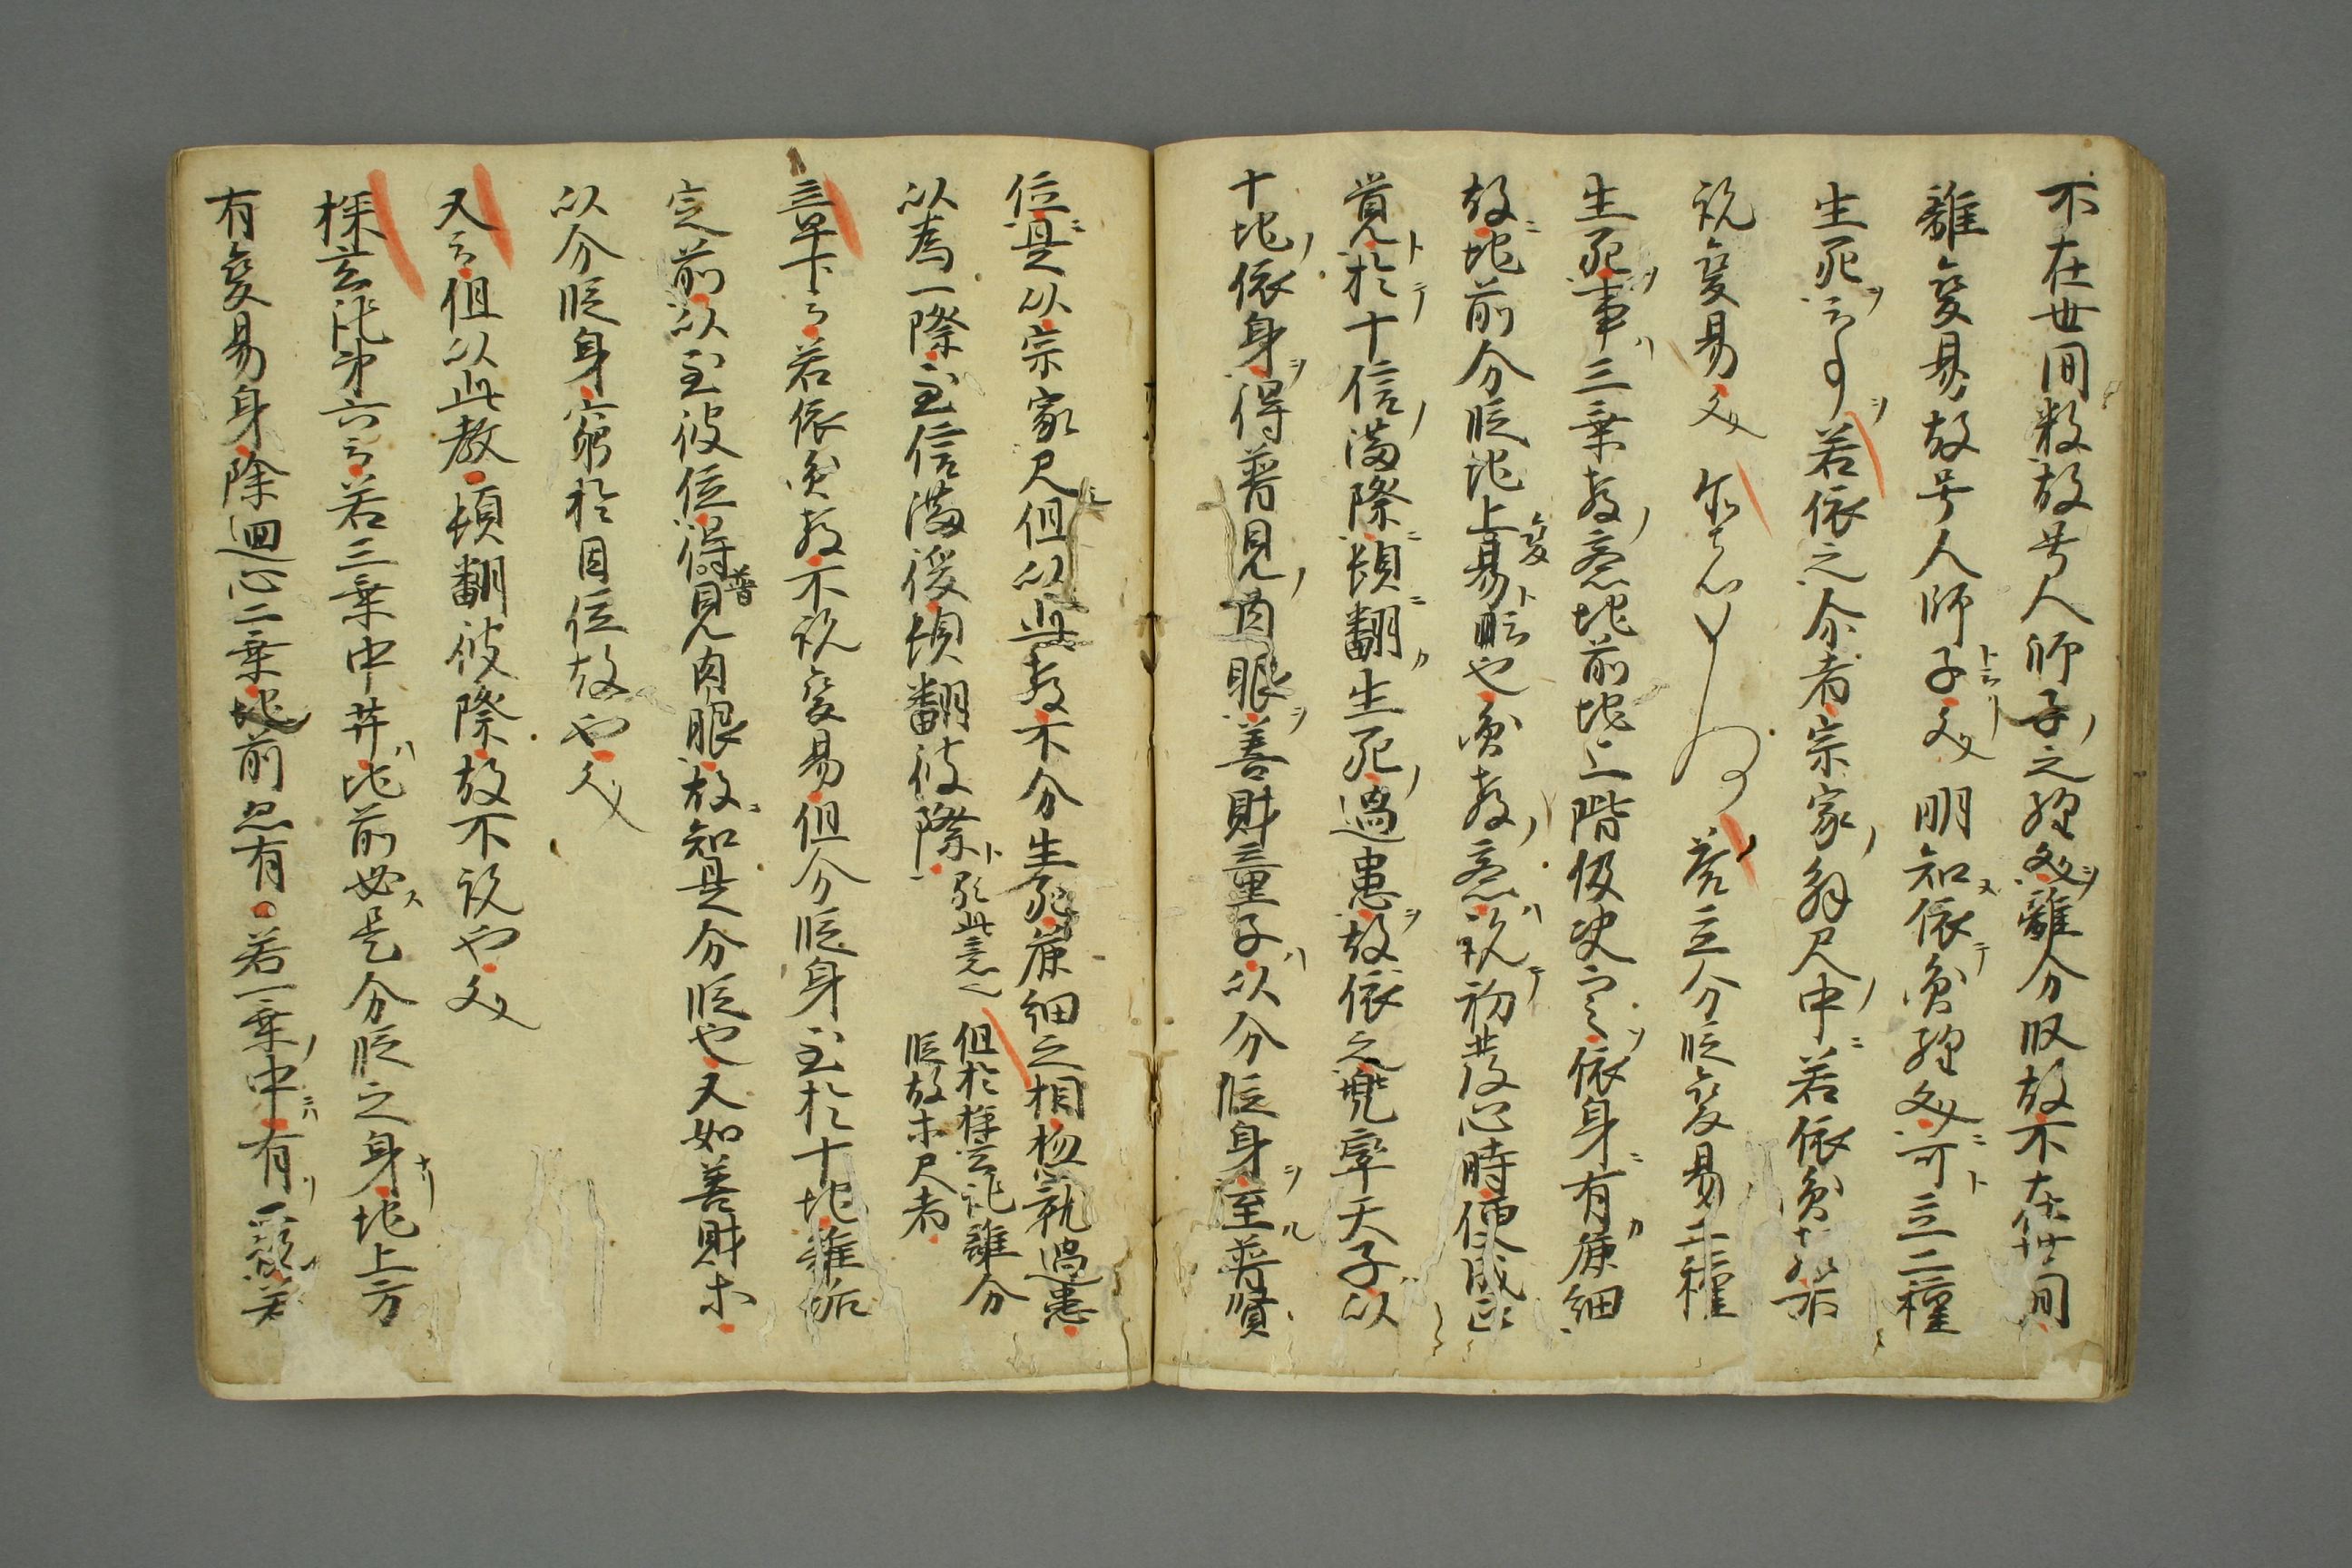 不在世間数故号人師子之經文離分段故不在世間
離變易故号人師子文 明知依円經文可立二種
生死云事 若依之尒者宗家解尺中若依円教
説變易文 如何 答立分段變易二種
生死事三乗教意地前地上階級決定依身有麁細
故地前分段地上變易云也円教意説初發心時便成正
覺於十信滿際頓翻生死過患故依之兜率天子以
十地依身得普見肉眼善財童子以分段身至普賢
位是以宗家尺但以此教不分生死麁細之相捴就過患
以為一際至信滿後頓翻彼際釈此意也 但於探玄記離分段故等尺者
三畢下云若依円教不説變易但分段身至於十地離垢
定前以至彼位得普見肉眼故知是分段也又如善財等
以分段身窮於因位故也文
又云但以此教頓翻彼際故不説也文
探玄記第六云若三乗中菩地前必是分段之身地上方
有變易身除迴心二乗地前忽有若一乗中有